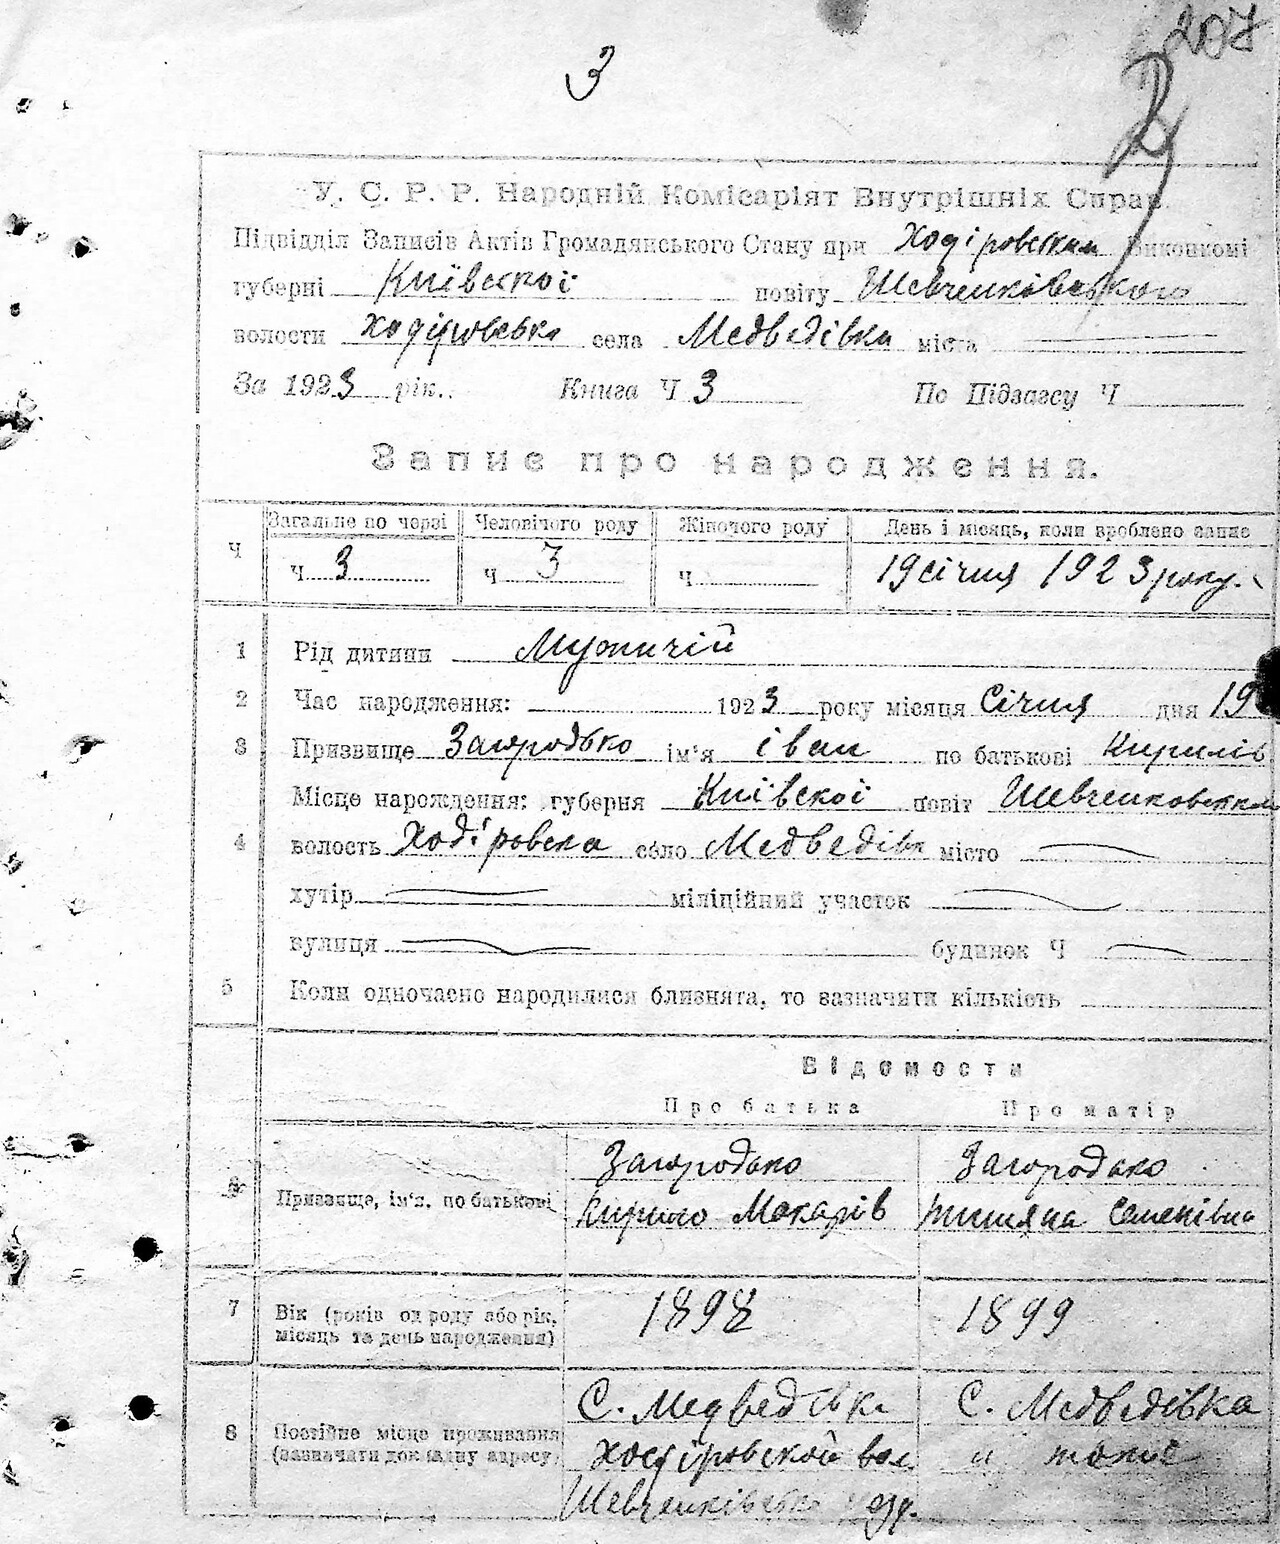 207
3
2
У. С. Р. Р. Народній Комісаріят Внутрішніх Справ.
Підвідділ Записів Актів Громадянського Стану при Ходіровским Виконкомі
губерні Київскої повіту Шевченковського
волости Ходіровсько села Медведівка міста
За 1923 рік. Книга Ч 3 По Підзагсу Ч
Запис про народження.
Ч Загальне по черзі Человічого роду Жіночого роду День і місяць, коли вроблено запис
Ч 3 Ч 3 Ч 19 січня 1923 року.
1 Рід дитини Мужичій
2 Час народження: 1923 року місяця Січня дня 19
3 Призвище Загородько ім'я іван по батькові Кирилів
Місце нарождення: губерня Київскої повіт Шевченковским
4 волость Ходіровска село Медведівк місто
хутір міліційний участок
вулиця будинок Ч
5 Коли одночасно народилися близнята, то зазначити кількість
Відомости
Про батька Про матір
Загородько Загородько
Призвище, ім'я, по батькові Кирило Макарів Титяна Семенівна
7 Вік (років од роду або рік, 1898 1899
місяць та день народження)
С. Медведівка С. Медведівка
8 Постійне місце проживання
(зазначати докладну адресу) Ходіровской вол. и тоже
Шевченківсько уезд.